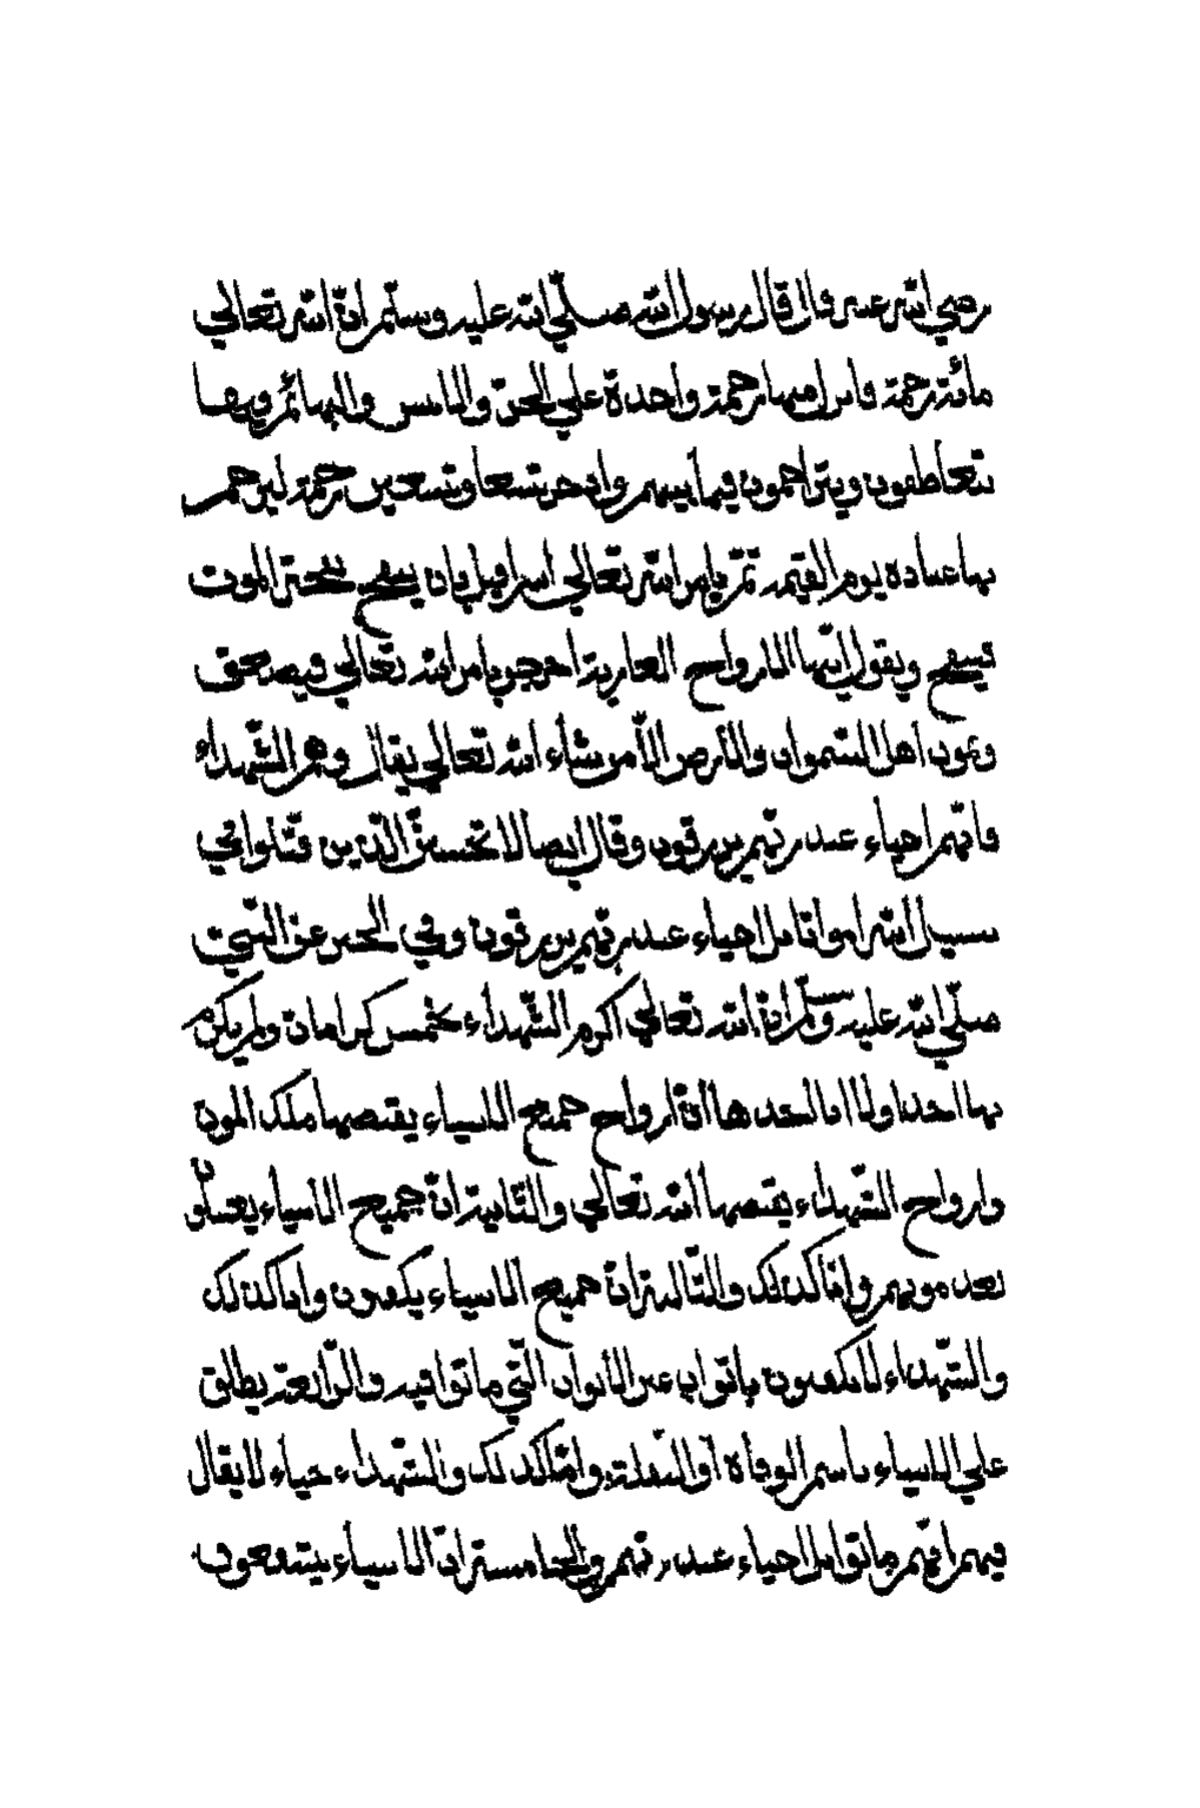 رضي الله عنه قال قال رسول الله صلّي الله عليه وسلّم انّ الله تعالي
مائة رحمة وانزل منها رحمة واحدة علي الجنّ والانس والبهائم وبها
يتعاطفون ويتراحمون فيما بينهم واخّر تسعا وتسعين رحمة ليرحم
بها عباده يوم القيمة ثمّ يامر الله تعالي اسرافيل بان ينفخ نفخة الموت
فينفخ ويقول ايّها الارواح العارية اخرجو بامر الله تعالي فيصعق
ويموت اهل السّموات والأرض الّا من شاء الله تعالي يقال وهم الشّهداء
فانّهم احياء عند ربّهم يرزقون وقال ايضا لا تحسبنّ الّذين قتلوا في
سبيل الله امواتا بل احياء عند ربّهم يرزقون وفي الخبر عن النّبيّ
صلّي الله عليه وسلّم انّ الله تعالي اكرم الشّهداء بخمس كرامات ولم يكرّم
بها احدا ولا انا احدها انّ ارواح جميع الانبياء يقبضها ملك الموت
وارواح الشّهداء يقبضها الله تعالي والثّانية انّ جميع الانبياء يغسلون
بعد موتهم وانا كذلك والثّالثة انّ جميع الانبياء يكفنون وانا كذلك
والشّهداء لا يكفنون بل ثواب عن الأثواب الّتي ماتوا فيه والرّابعة يطلق
علي الانبياء باسم الوفاة او النقلة وانا كذلك والشّهداء حياء لا يقال
فيهم انّهم ماتوا بل احياء عند ربّهم والخامسة انّ الانبياء يشفعون